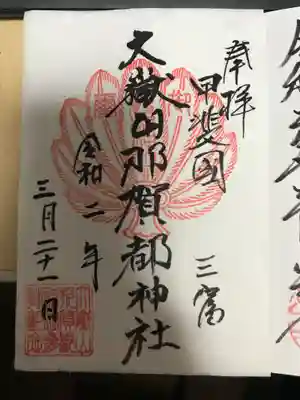 奉拝
甲斐國
三富
大嶽山那賀都神社
令和二年
三月二十一日